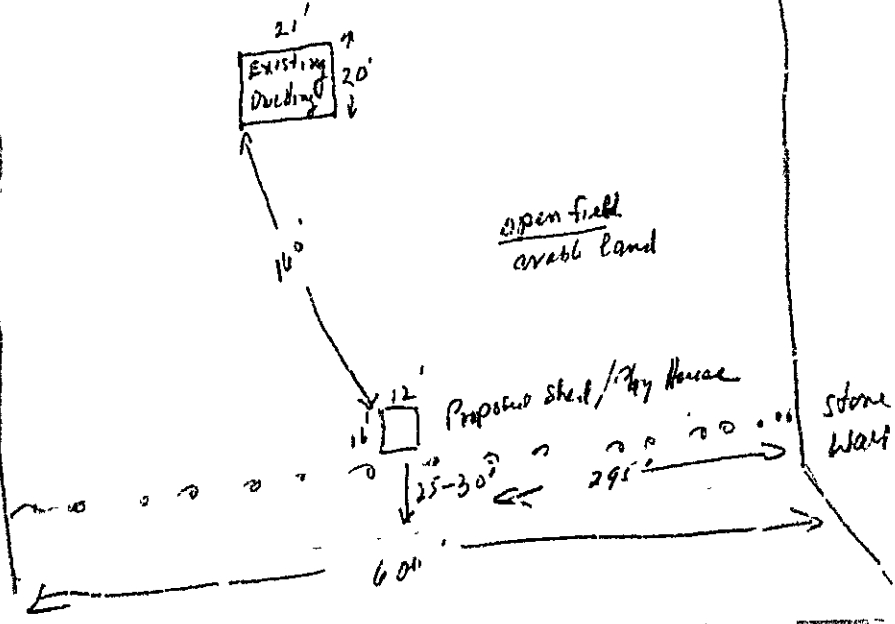 21'
Existing
Dwelling
20'
open field
arable land
12'
Proposed Shed / Play House
16'
stone
wall
25-30'
295'